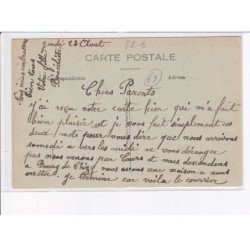 Jeudi 23 Aout
CARTE POSTALE
Correspondance
Adresse
69
Chers Parents
J'ai reçu votre carte hier qui m'a fait
bien plaisir et je vous fait simplement ces
deux mots pour vous dire que nous arrivons
samedi a vers les midi ne vous déranger
pas nous venons par Cours et nous descendons
a Bourg de Thizy nous avons une maison a nous
arrêter. Je termine car voila le courrier